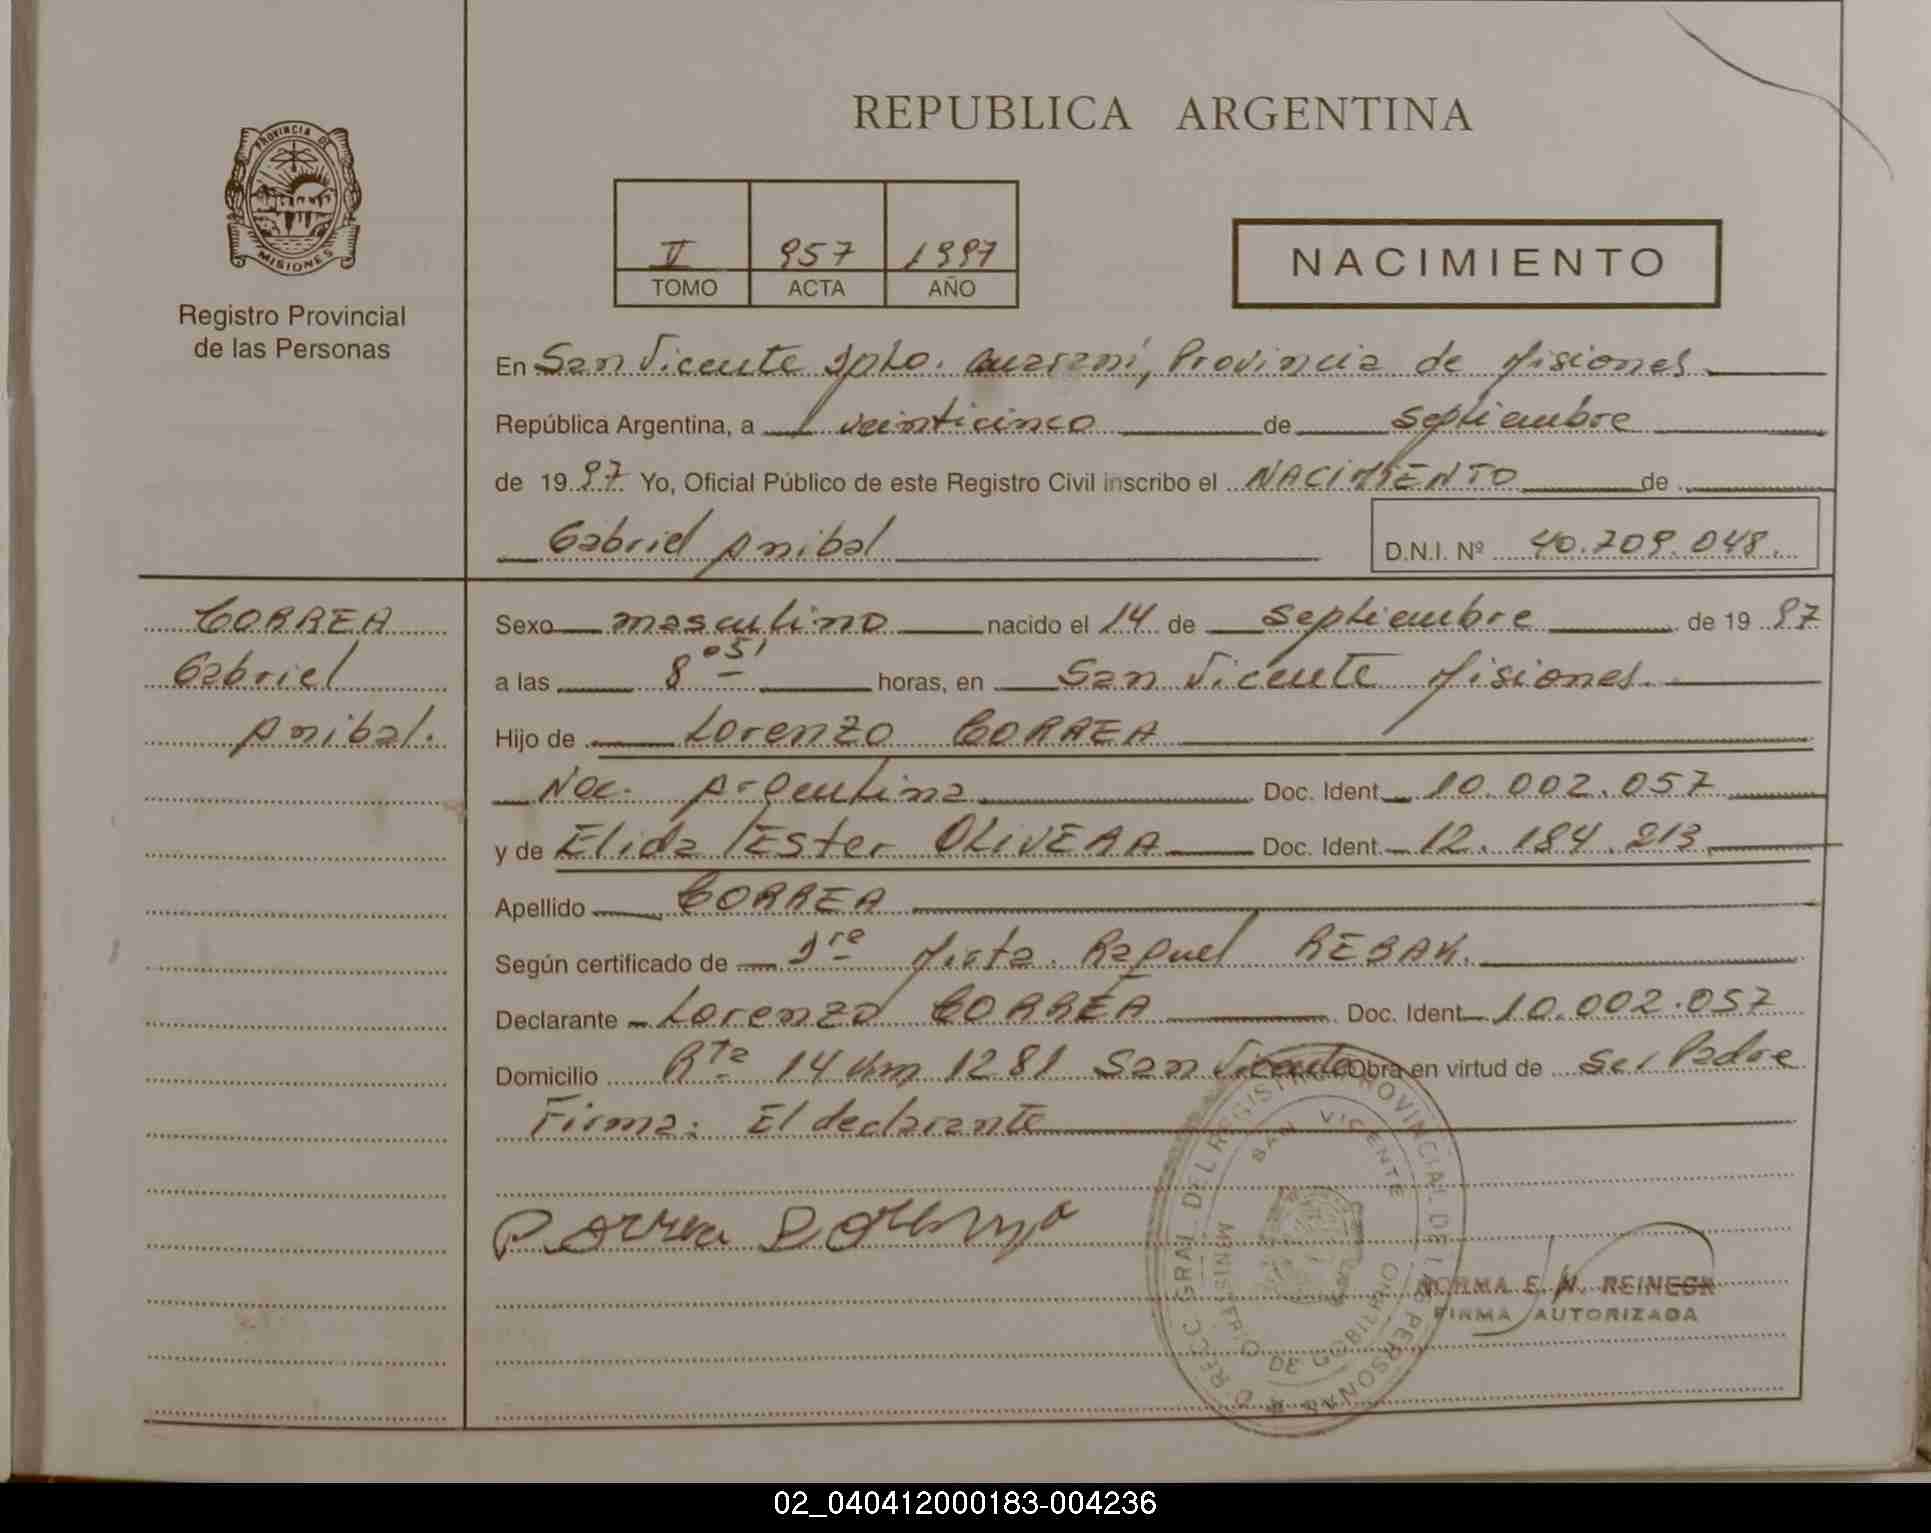 REPUBLICA ARGENTINA
PROVINCIA DE
MISIONES
Registro Provincial
de las Personas
II 957 1997
TOMO ACTA AÑO
NACIMIENTO
En San Vicente Dpto. Guaraní, Provincia de Misiones
República Argentina, a veinticinco de septiembre
de 1997 Yo, Oficial Público de este Registro Civil inscribo el NACIMIENTO de
Gabriel Anibal
D.N.I. Nº 40.709.048.
CORREA
Gabriel
Anibal.
Sexo masculino nacido el 14 de septiembre de 1997
a las 8 05' horas, en San Vicente Misiones.
Hijo de Lorenzo CORREA
Nac. Argentina Doc. Ident. 10.002.057
y de Elida Ester OLIVERA Doc. Ident. 12.184.213
Apellido CORREA
Según certificado de Raquel
Declarante Lorenzo CORREA Doc. Ident. 10.002.057
Domicilio Rta 14 Km 1281 San Vicente Obra en virtud de ser Padre
Firma: El declarante
Correa Lorenzo
DIRECC. GRAL. DEL REGISTRO PROVINCIAL DE LAS PERSONAS
SAN VICENTE
MINISTERIO DE GOBIERNO
NORMA E. N. REINECK
FIRMA AUTORIZADA
02_040412000183-004236